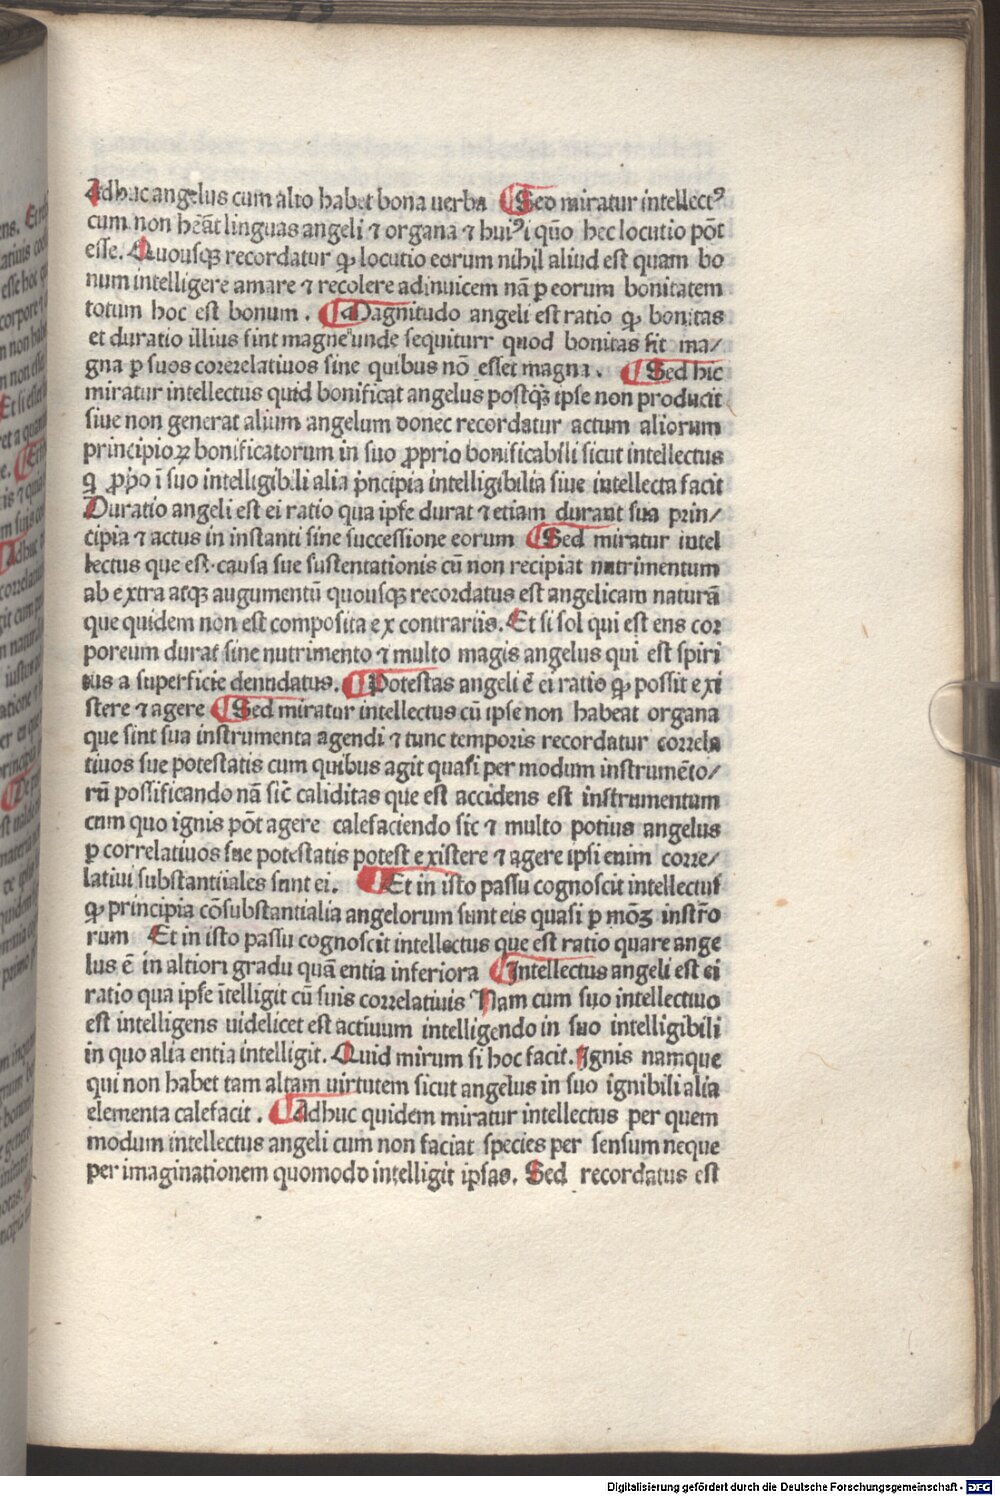 Adhuc angelus cum alto habet bona uerba ¶ Sed miratur intellectꝰ
cum non hēāt linguas angeli ⁊ organa ⁊ huiꝰi qūo hec locutio pōt
esse. Quousqꝫ recordatur ꝙ locutio eorum nihil aliud est quam bo
num intelligere amare ⁊ recolere adinuicem nā ꝑ eorum bonitatem
totum hoc est bonum . ¶ Magnitudo angeli est ratio ꝙ bonitas
et duratio illius sint magne unde sequiturr quod bonitas sit ma/
gna ꝑ suos correlatiuos sine quibus nō esset magna . ¶ Sed hic
miratur intellectus quid bonificat angelus postqꝫ̄ ipse non producit
siue non generat alium angelum donec recordatur actum aliorum
principioꝝ bonificatorum in suo ꝓprio bonificabili sicut intellectus
ꝗ ꝓp̄o ī suo intelligibili alia p̄ncipia intelligibilia siue intellecta facit
Duratio angeli est ei ratio qua ipse durat ⁊ etiam durant sua prin/
cipia ⁊ actus in instanti sine successione eorum ¶ Sed miratur intel
lectus que est causa sue sustentationis cū non recipiāt nutrimentum
ab extra atqꝫ augumentū quousqꝫ recordatus est angelicam naturā
que quidem non est composita ex contrariis. Et si sol qui est ens cor
poreum durat sine nutrimento ⁊ multo magis angelus qui est spiri
tus a superficie denudatus. ¶ Potestas angeli ē ei ratio ꝙ possit exi
stere ⁊ agere ¶ Sed miratur intellectus cū ipse non habeat organa
que sint sua instrumenta agendi ⁊ tunc temporis recordatur correla
tiuos sue potestatis cum quibus agit quasi per modum instrumēto/
rū possificando nā sic̄ caliditas que est accidens est instrumentum
cum quo ignis pōt agere calefaciendo sic ⁊ multo potius angelus
ꝑ correlatiuos sue potestatis potest existere ⁊ agere ipsi enim corre/
latiui substantiiales sunt ei. ¶ Et in isto passu cognoscit intellectus
ꝙ principia cōsubstantialia angelorum sunt eis quasi ꝑ mōꝫ instr̄o
rum Et in isto passu cognoscit intellectus que est ratio quare ange
lus ē in altiori gradu quā entia inferiora ¶ Intellectus angeli est ei
ratio qua ipse ītelligit cū suis correlatiuis Nam cum suo intellectiuo
est intelligens uidelicet est actiuum intelligendo in suo intelligibili
in quo alia entia intelligit. Quid mirum si hoc facit. Ignis namque
qui non habet tam altam uirtutem sicut angelus in suo ignibili alia
elementa calefacit . ¶ Adhuc quidem miratur intellectus per quem
modum intellectus angeli cum non faciat species per sensum neque
per imaginationem quomodo intelligit ipsas. Sed recordatus est
Digitalisierung gefördert durch die Deutsche Forschungsgemeinschaft - DFG